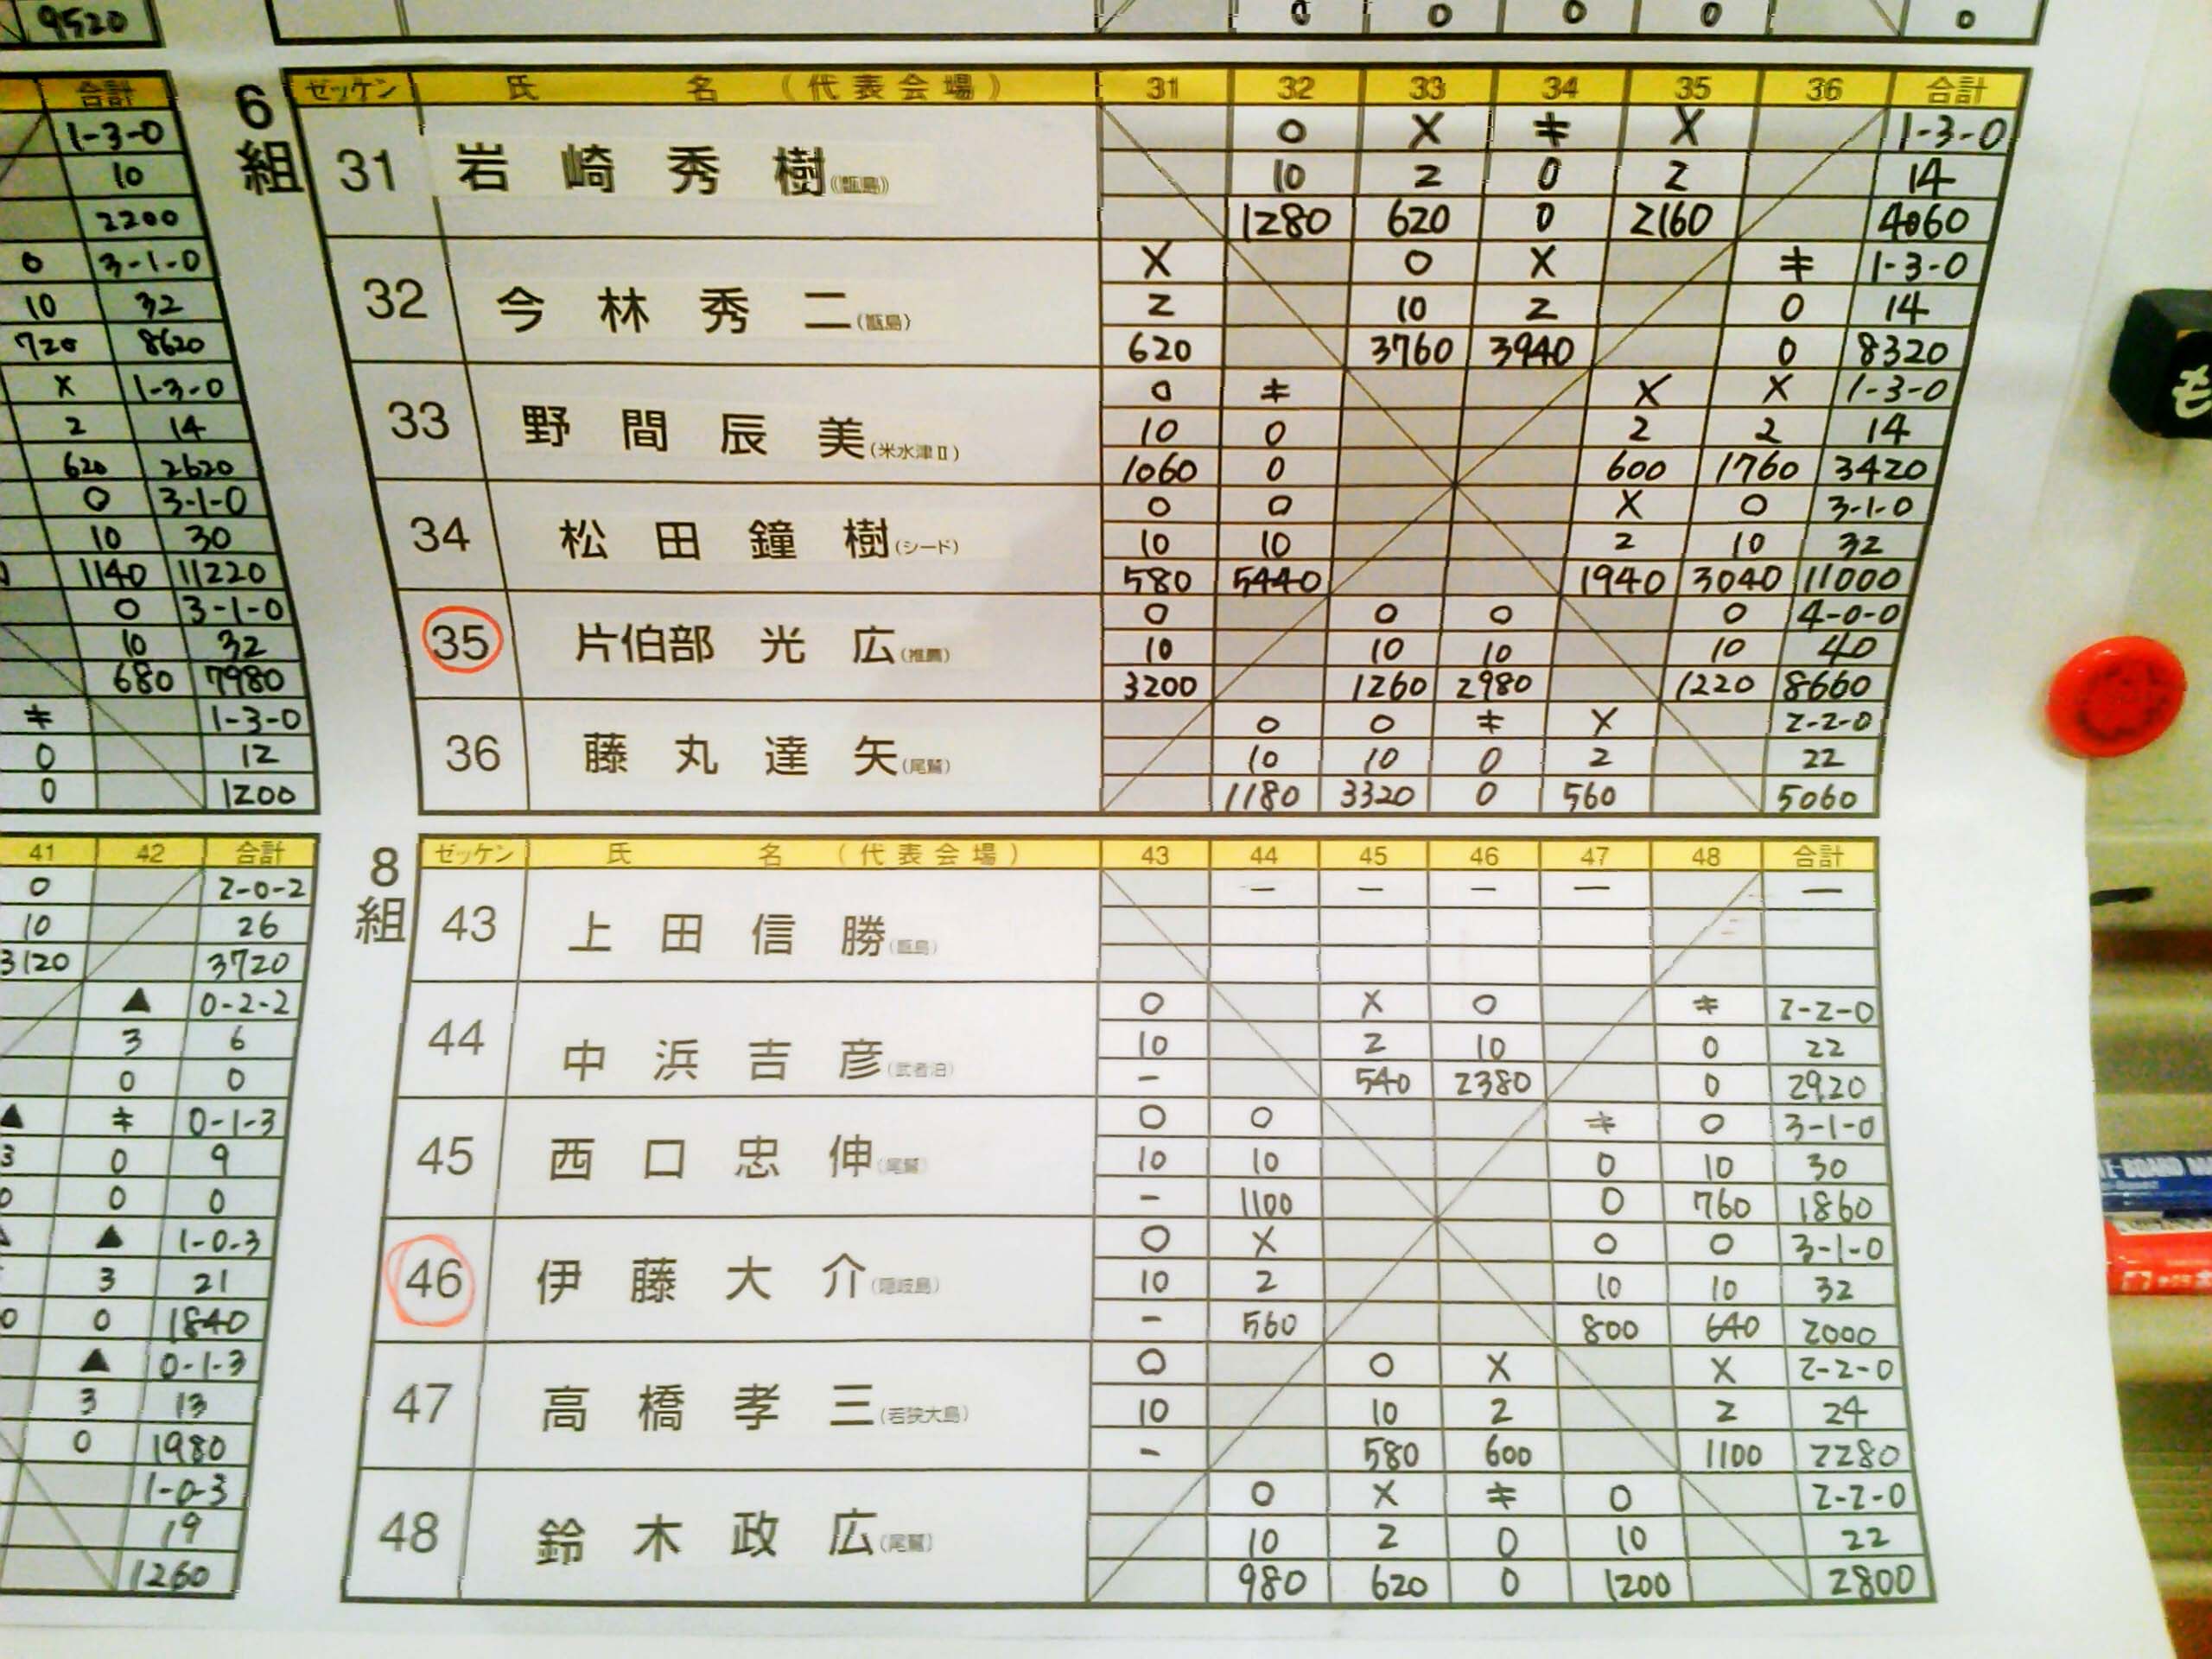 9520
0 0 0 0 0
合計
1-3-0
10
2200
0 3-1-0
10 32
720 8620
X 1-3-0
2 14
620 2620
0 3-1-0
10 30
1140 11220
0 3-1-0
10 32
680 7980
キ 1-3-0
0 12
0 1200
6組
ゼッケン 氏 名 (代表会場) 31 32 33 34 35 36 合計
31 岩崎秀樹 (甑島)
O X キ X 1-3-0
10 2 0 2 14
1280 620 0 2160 4060
32 今林秀二 (甑島)
X O X キ 1-3-0
2 10 2 0 14
620 3760 3940 0 8320
33 野間辰美 (米水津Ⅱ)
O キ X X 1-3-0
10 0 2 2 14
1060 0 600 1760 3420
34 松田鐘樹 (シード)
O O X O 3-1-0
10 10 2 10 32
580 5440 1940 3040 11000
35 片伯部光広 (推薦)
O O O O 4-0-0
10 10 10 10 40
3200 1260 2980 1220 8660
36 藤丸達矢 (尾鷲)
O O キ X 2-2-0
10 10 0 2 22
1180 3320 0 560 5060
41 42 合計
0 2-0-2
10 26
3120 3720
▲ 0-2-2
3 6
0 0
▲ キ 0-1-3
3 0 9
0 0 0
▲ 1-0-3
3 21
0 0 1840
▲ 0-1-3
3 13
0 1980
1-0-3
19
1260
8組
ゼッケン 氏 名 (代表会場) 43 44 45 46 47 48 合計
43 上田信勝 (甑島)
— — — — —
44 中浜吉彦 (武者泊)
O X O キ 2-2-0
10 2 10 0 22
- 540 2380 0 2920
45 西口忠伸 (尾鷲)
O O キ O 3-1-0
10 10 0 10 30
- 1100 0 760 1860
46 伊藤大介 (隠岐島)
O X O O 3-1-0
10 2 10 10 32
- 560 800 640 2000
47 高橋孝三 (若狭大島)
O O X X 2-2-0
10 10 2 2 24
- 580 600 1100 2280
48 鈴木政広 (尾鷲)
O X キ O 2-2-0
10 2 0 10 22
980 620 0 1200 2800
も